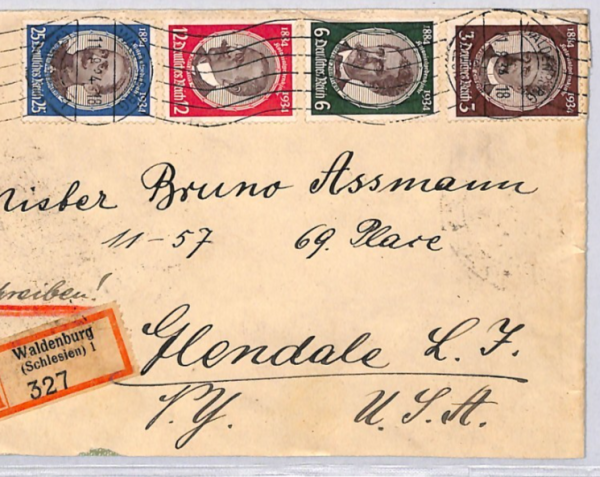 1884 1934 25 Deutsches Reich 25
1884 1934 12 Deutsches Reich 12
1884 1934 6 Deutsches Reich 6
1884 1934 3 Deutsches Reich 3
WALDENBURG
18
18
Mister Bruno Assmann
11-57 69. Place
hreiben!
Waldenburg
(Schlesien) 1
327
Glendale L. I.
N.Y. U.S.A.